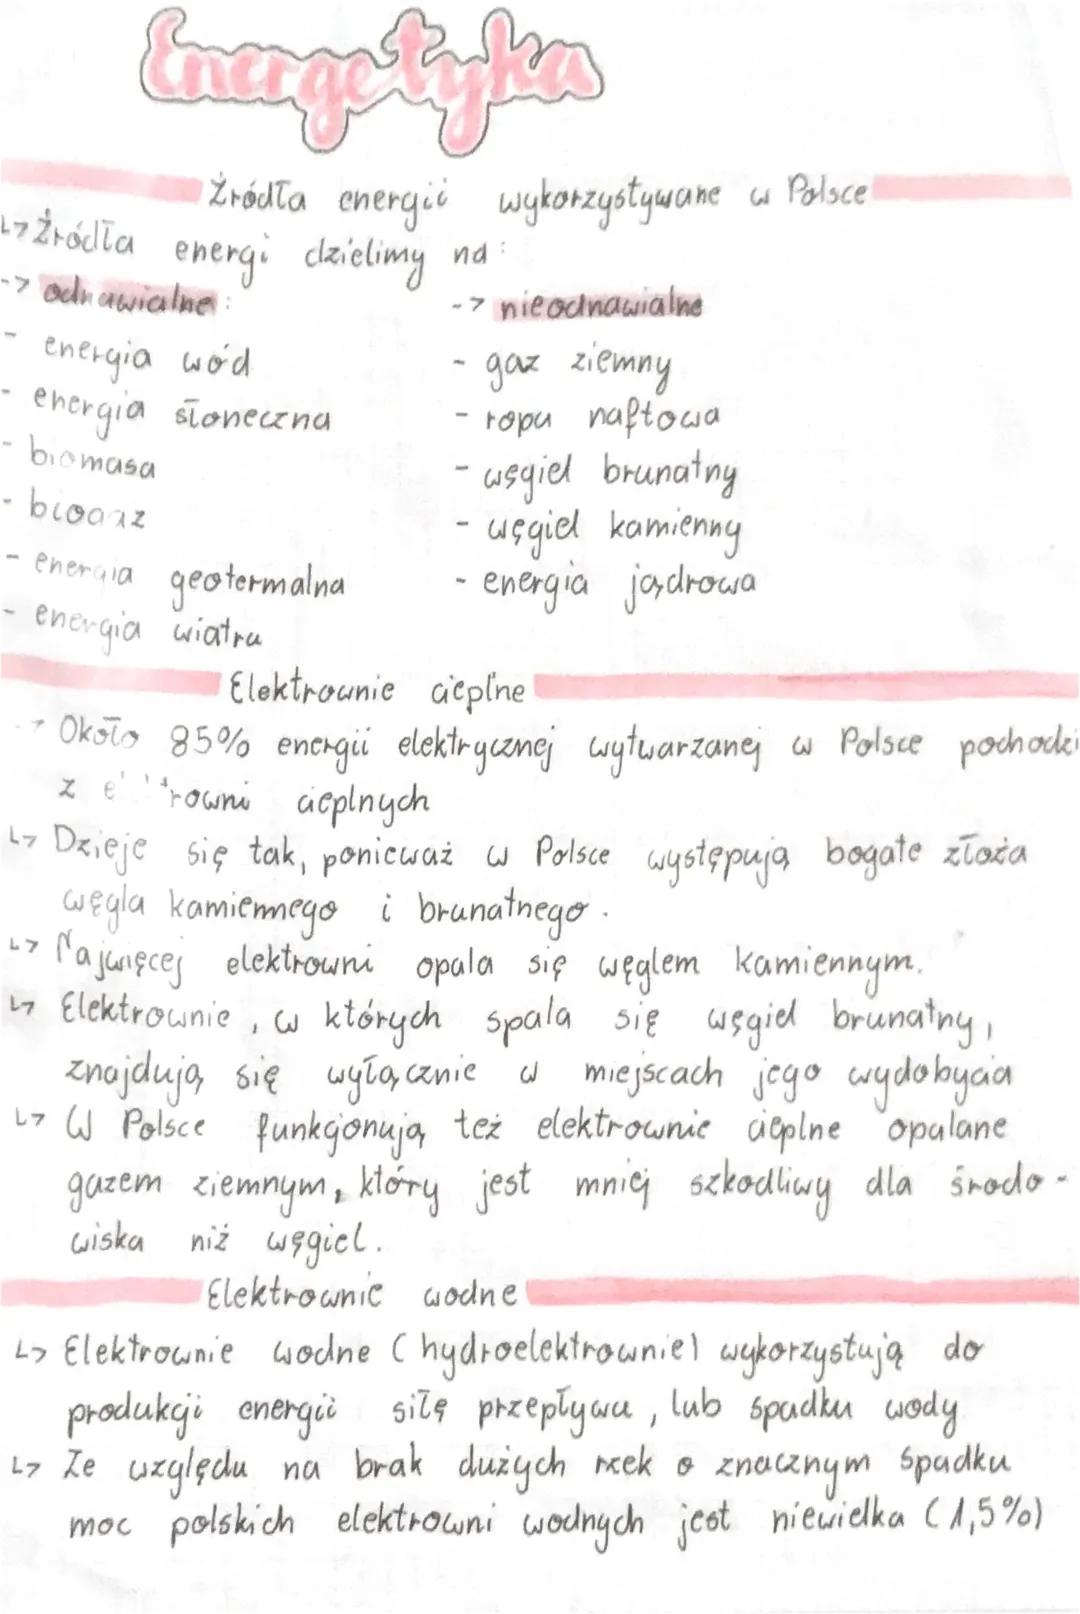 Energetyka
Źródła energii wykorzystywane w Polsce
↳ Źródła energi dzielimy na:
-> odnawialne: -> nieodnawialne
- energia wód - gaz ziemny
- energia słoneczna - ropa naftowa
- biomasa - węgiel brunatny
- biogaz - węgiel kamienny
- energia geotermalna - energia jądrowa
- energia wiatru
Elektrownie cieplne
-> Około 85% energii elektrycznej wytwarzanej w Polsce pochodzi
z elektrowni cieplnych
↳ Dzieje się tak, ponieważ w Polsce występują bogate złoża
węgla kamiennego i brunatnego.
↳ Najwięcej elektrowni opala się węglem kamiennym.
↳ Elektrownie, w których spala się węgiel brunatny,
znajdują się wyłącznie w miejscach jego wydobycia
↳ W Polsce funkcjonują też elektrownie cieplne opalane
gazem ziemnym, który jest mniej szkodliwy dla środo-
wiska niż węgiel.
Elektrownie wodne
↳ Elektrownie wodne (hydroelektrownie) wykorzystują do
produkcji energii siłę przepływu, lub spadku wody
↳ Ze względu na brak dużych rzek o znacznym spadku
moc polskich elektrowni wodnych jest niewielka (1,5%)